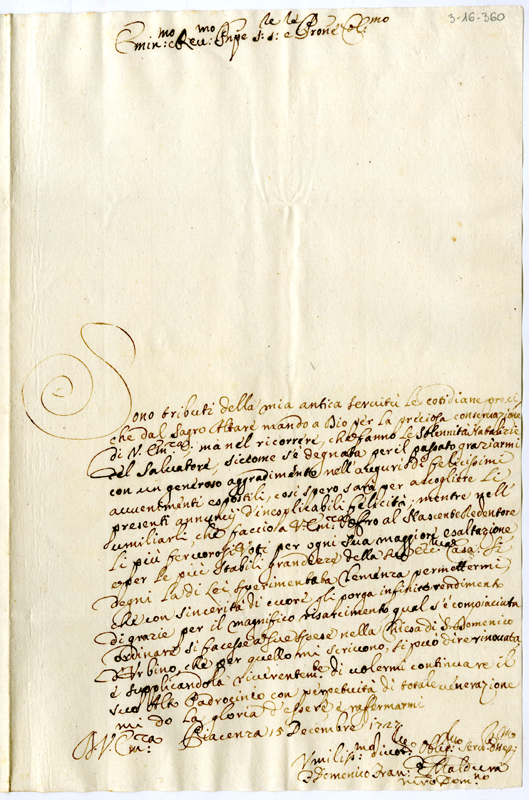 3-16-360
Emin:mo e Reu:mo Snpe s: s: e Prone Col:mo
Sono tributi della mia antica seruitù le cotidiane preci,
che dal Sagro Altare mando a Dio per la preciosa conseruazione
di V. Em:za: mà nel ricorrere, che fanno le Solennità Natalizie
del Saluatore, sicome s'è degnata per il passato graziarmi
con un generoso aggradimento nell'augurio de felicissimi
auuenimenti così spero sarà per accogliere li
presenti annuncij d'inesplicabili felicità, mentre nell'
humiliarli, che faccio a V. Em:za offro al Nascente Redentore
li più feruorosi Voti per ogni sua maggiore esaltazione
e per le più stabili grandezze della Casa. Si
degni la di Lei sperimentata Clemenza permettermi
che con sincerità di cuore gli porga infinito rendimento
di grazie per il magnifico risarcimento qual s'è compiaciuta
ordinare si facesse a sue spese nella Chiesa di S. Domenico
d'Urbino, che per quello mi scriuono, si può dire rinouata
e supplicandola riuerentem:te di uolermi continuare il
suo Alto Padrocinio con perpetuità di totale uenerazione
mi do la gloria d'essere e raffermarmi
D V. Em:za Piacenza 15 Decembre 1727
Vmiliss:mo Diuot: Oblig: Seru:
F Domenico Fran: